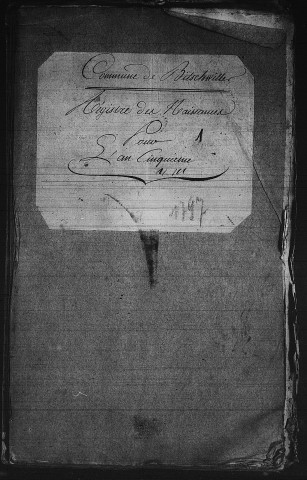 Commune de Bitschwiller
Registre des Naissances
Pour
L'an Cinquieme
1797